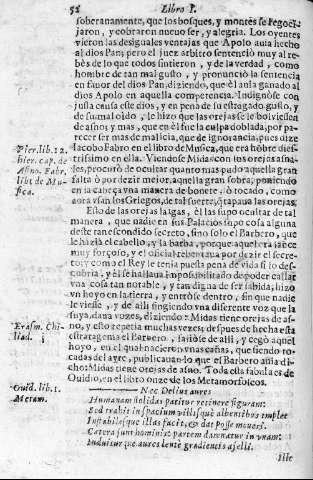 52 Libro I.
soberanamente, que los bosques, y montes se regoci-
jaron, y cobraron nueuo ser, y alegria. Los oyentes
vieron las desiguales ventajas que Apolo auia hecho
al dios Pan; pero el juez arbitro sentenciò muy al re-
bès de lo que todos sintieron, y de la verdad, como
hombre de tan mal gusto, y pronunciò la sentencia
en fauor del dios Pan, diziendo, que èl auia ganado al
dios Apolo en aquella competencia. Indignòse con
justa causa este dios, y en pena de su estragado gusto, y
de su mal oido, le hizo que las orejas se le boluiessen
de asno, y mas, que en èl fue la culpa doblada, por pa-
recer ser mas de malicia, que de ignorancia, pues dize
Iacobo Fabro en el libro de Musica, que era hõbre dies-
trissimo en ella. Viendose Midas con los orejas asna-
les, procurò de ocultar quanto mas pudo aquella gran
falta ò por dezir mejor, aquella gran sobra, poniendo
en la cabeça vna manera de bonete, ò tocado, como
aora vsan los Griegos, de tal suerte, q̃ tapaua las orejas.
Esto de las orejas largas, èl las supo ocultar de tal
manera, que nadie en sus Palacios supo cosa alguna
deste tan escondido secreto, sino solo el Barbero, que
le hazia el cabello, y la barba, porque aquel era lance
muy forçoso, y el oficial rebentaua por dezir el secre-
to, y como el Rey le tenia puesta pena de vida si lo des-
cubria, y èl se hallaua imposibilitado de poder callar
vna cosa tan notable, y tan digna de ser sabida, hizo
vn hoyo en la tierra, y entròse dentro, sin que nadie
le viesse, y de alli fingiendo vna diferente voz que la
suya, daua vozes, diziendo: Midas tiene orejas de as-
no, y esto repetia muchas vezes; despues de hecha esta
estratagema el Barbero, saliòse de alli, y cegò aquel
hoyo, en el qual nacieron vnas cañas, que siendo to-
cadas del ayre, publicauan lo que el Barbero auia di-
cho: Midas tiene orejas de asno. Toda esta fabula es de
Ouidio, en el libro onze de los Metamorfoseos.
Pier. lib. 12.
hier. cap. de
Asno. Fabr.
lib. de Mu-
sica.
Erasm. Chi-
liad. i
Ouid. lib. 1.
Metam.
—— Nec Delius aures
Humanam stolidas patitur retinere figuram:
Sed trahit in spacium villisque albentibus implet
Instabilesque illas facit, & dat posse moueri.
Cætera sunt hominis: partem damnatur in vnam:
Induitur que aures lente gradientis aselli.
Ille